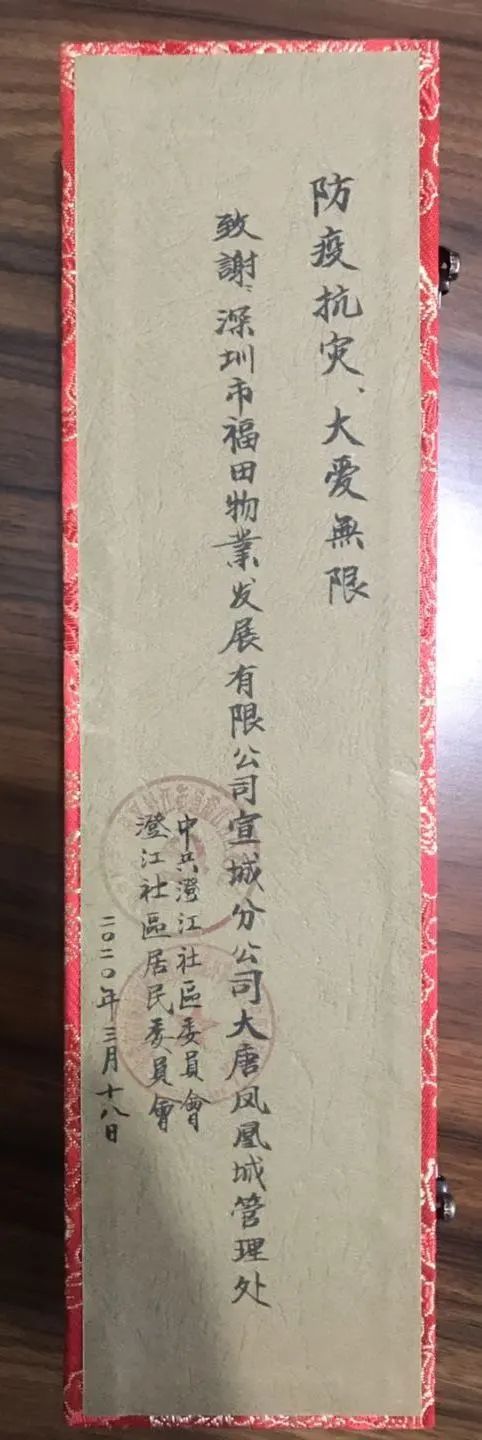 防疫抗灾、大爱無限
致謝：深圳市福田物業发展有限公司宣城分公司大唐凤凰城管理处
中共澄江社區委員會
澄江社區居民委員會
二〇二〇年三月十八日